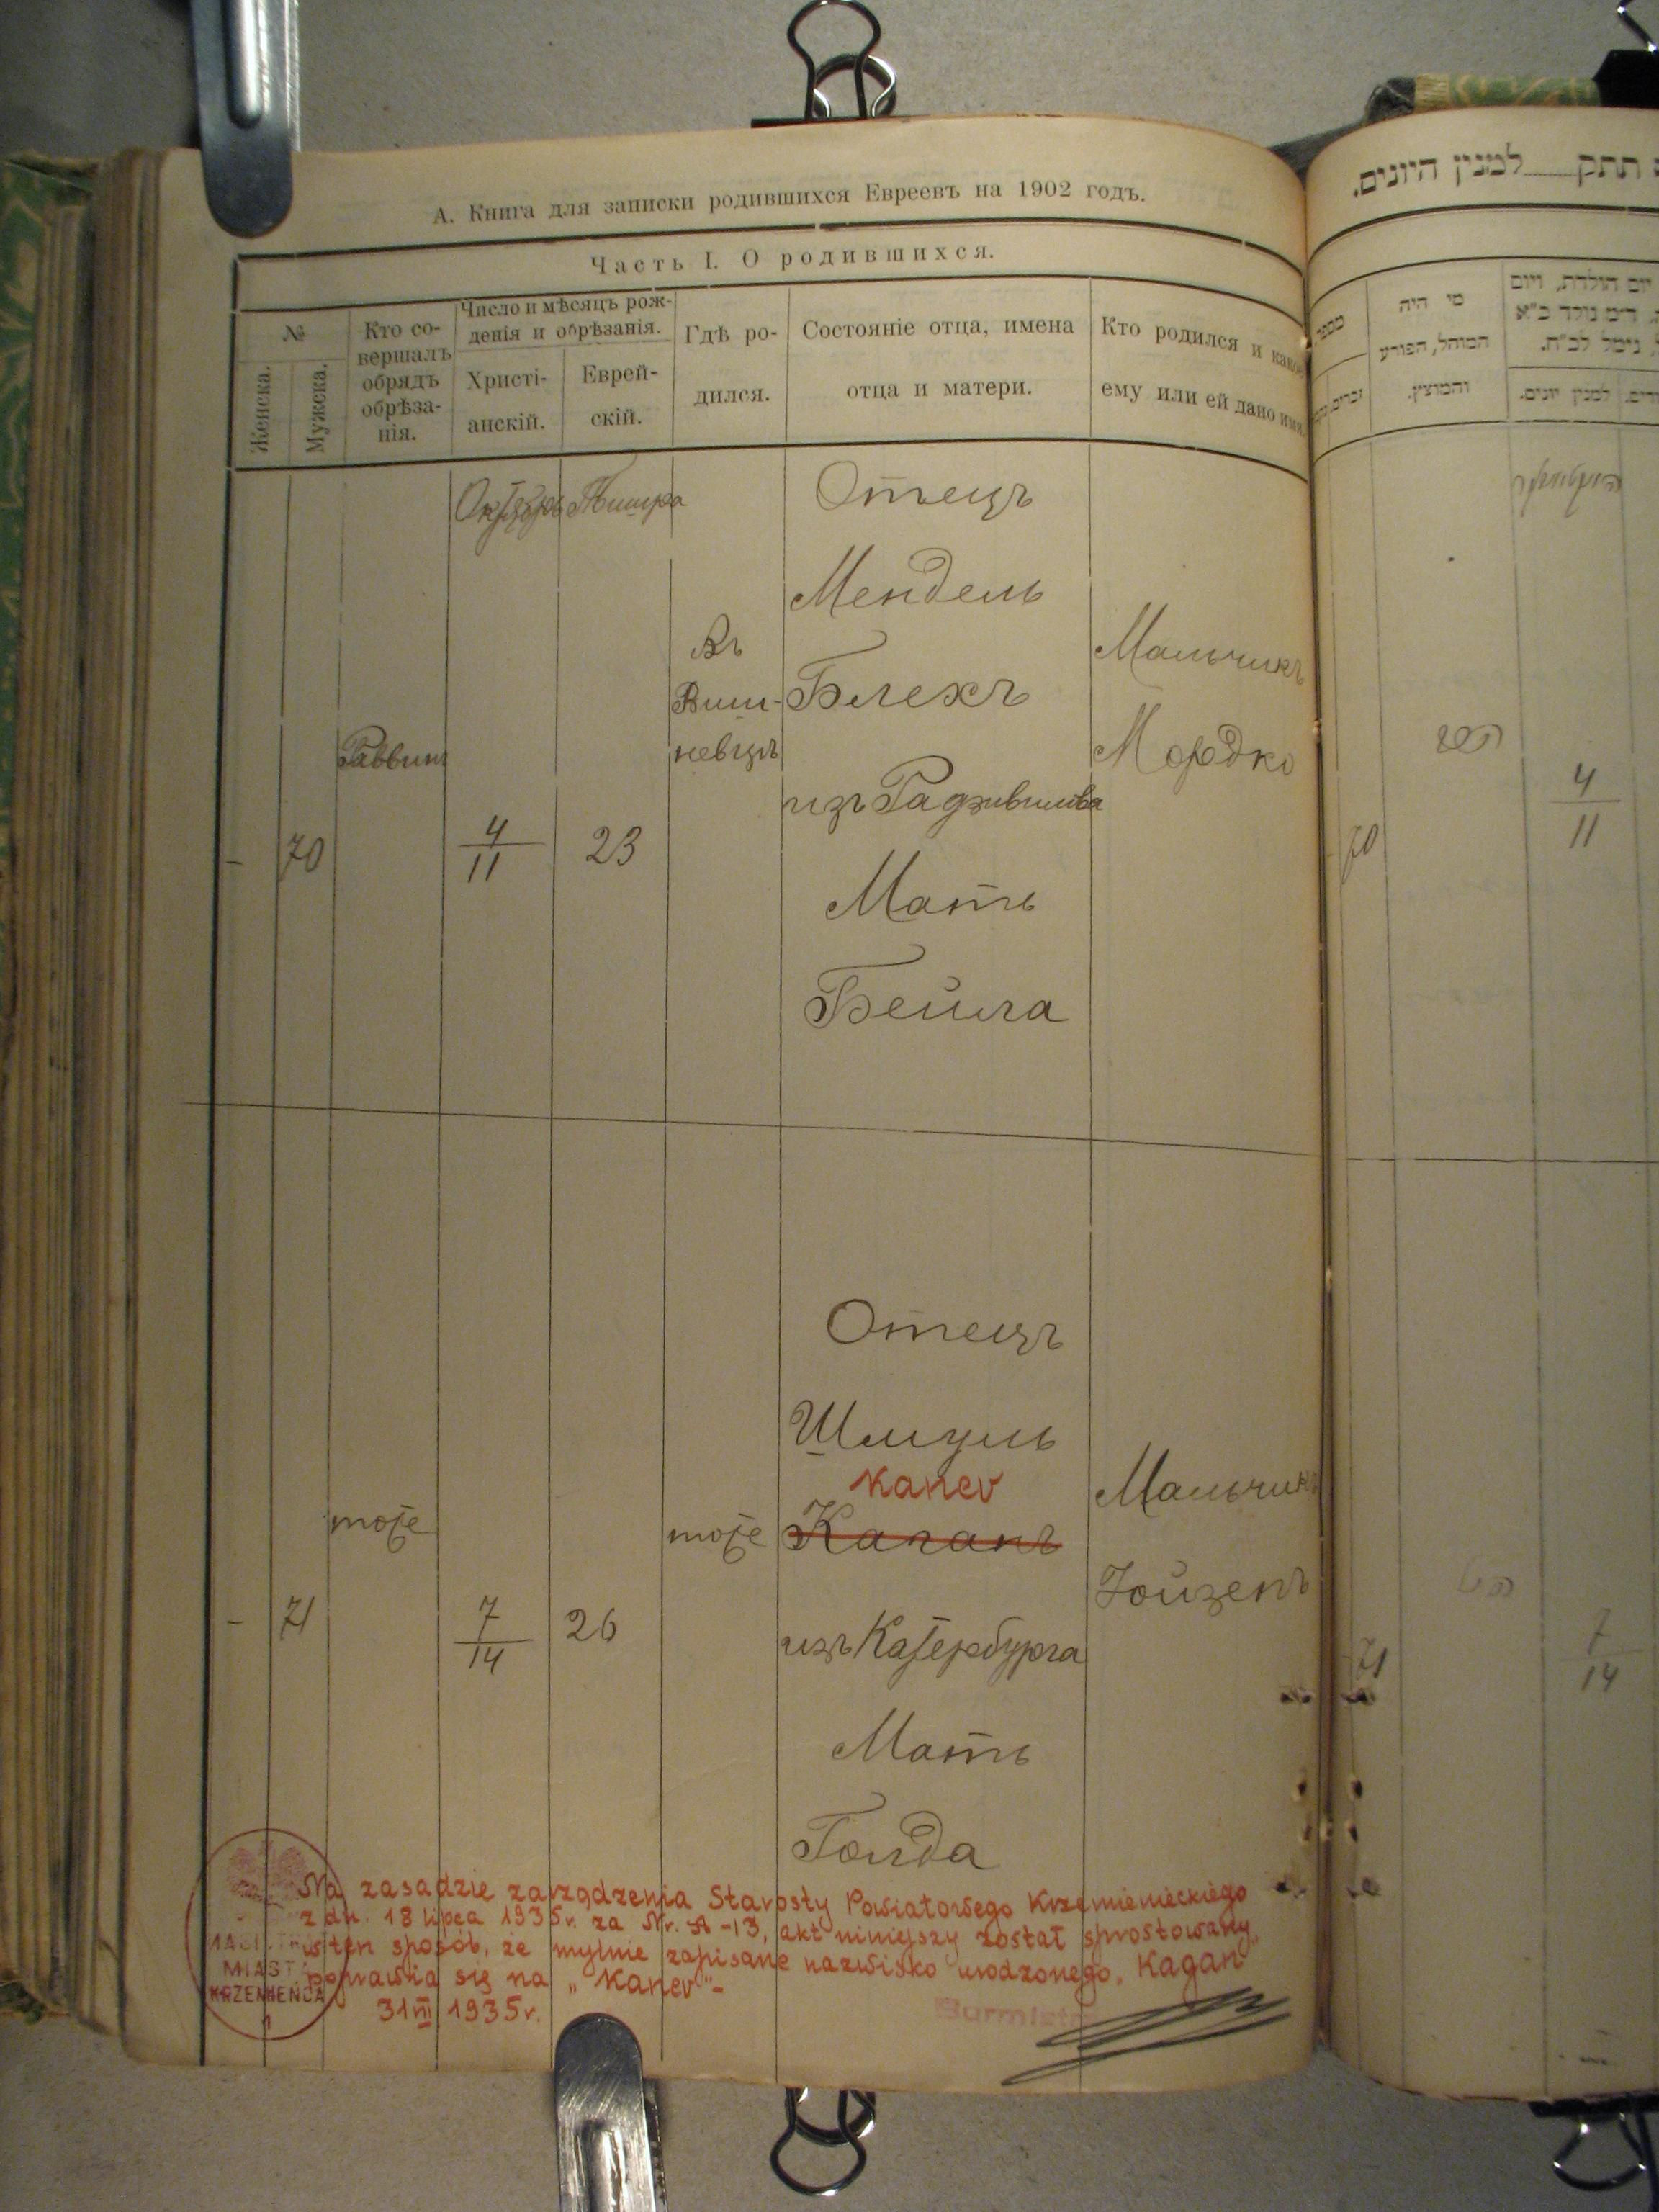 А. Книга для записки родившихся Евреевъ на 1902 годъ.
Часть I. О родившихся.
№
Женска.
Мужска.
Кто со-
вершалъ
обрядъ
обрѣза-
нія.
Число и мѣсяцъ рож-
денія и обрѣзанія.
Христі-
анскій.
Еврей-
скій.
Гдѣ ро-
дился.
Состояніе отца, имена
отца и матери.
Кто родился и какое
ему или ей дано имя.
Октябрь Тишра
Отецъ
Мендель
Блехъ
изъ Радзивилова
Мать
Бейла
Въ
Виш-
невцѣ
Мальчикъ
Мордко
Раввинъ
- 70
4
11
23
Отецъ
Шмуль
Kanev
Каганъ
изъ Катербурга
Мать
Голда
тоже
тоже
Мальчикъ
Іойзепъ
- 71
7
14
26
Na zasadzie zarządzenia Starosty Powiatowego Krzemienieckiego
z dn. 18 lipca 1935 r. za Nr. A-13, akt niniejszy został sprostowany
w ten sposób, że mylnie zapisane nazwisko urodzonego „Kagan"
poprawia się na „Kanev"-
31 1935 r.
MIASTA
KRZEMIEŃCA
Burmistrz
תתק למנין היונים.
מספר
זכרים
מי היה
המוהל, הפורע
והמוצץ.
יום הולדת, ויום
למנין יונים.
70
4
11
71
7
14